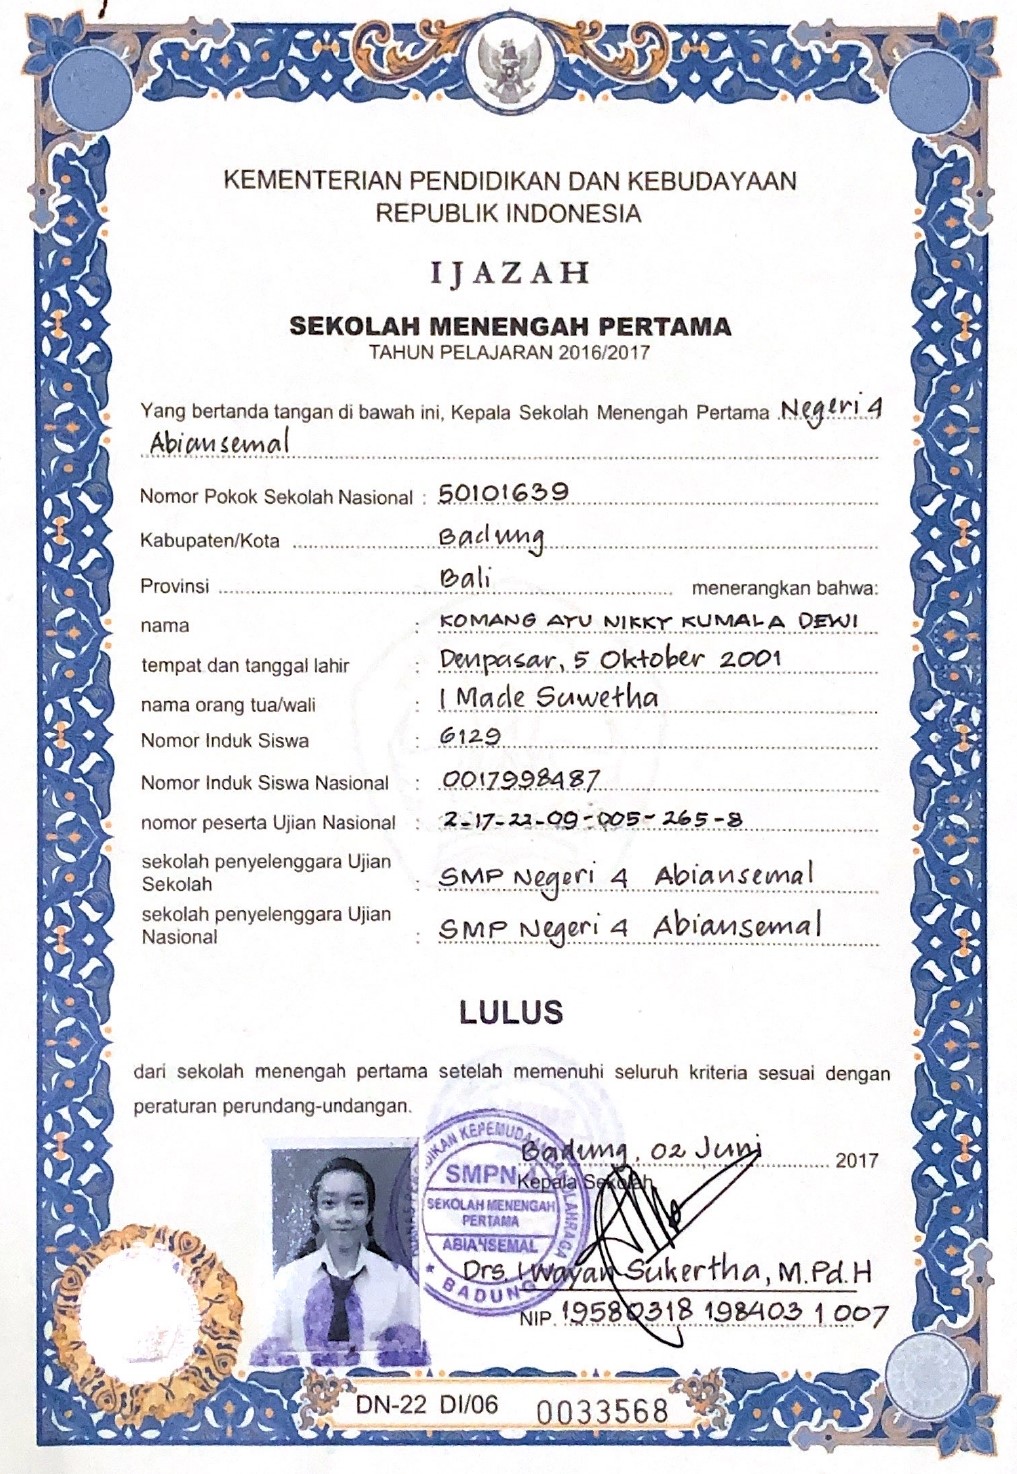 KEMENTERIAN PENDIDIKAN DAN KEBUDAYAAN
REPUBLIK INDONESIA
IJAZAH
SEKOLAH MENENGAH PERTAMA
TAHUN PELAJARAN 2016/2017
Yang bertanda tangan di bawah ini, Kepala Sekolah Menengah Pertama Negeri 4
Abiansemal
Nomor Pokok Sekolah Nasional : 50101639
Kabupaten/Kota Badung
Provinsi Bali menerangkan bahwa:
nama : KOMANG AYU NIKKY KUMALA DEWI
tempat dan tanggal lahir : Denpasar, 5 Oktober 2001
nama orang tua/wali : I Made Suwetha
Nomor Induk Siswa : 6129
Nomor Induk Siswa Nasional : 0017998487
nomor peserta Ujian Nasional : 2-17-22-09-005-265-8
sekolah penyelenggara Ujian
Sekolah : SMP Negeri 4 Abiansemal
sekolah penyelenggara Ujian
Nasional : SMP Negeri 4 Abiansemal
LULUS
dari sekolah menengah pertama setelah memenuhi seluruh kriteria sesuai dengan
peraturan perundang-undangan.
Badung, 02 Juni 2017
Kepala Sekolah,
SMPN 4
SEKOLAH MENENGAH
PERTAMA
ABIANSEMAL
BADUNG
Drs. I Wayan Sukertha, M.Pd.H
NIP. 19580318 198403 1 007
DN-22 DI/06 0033568